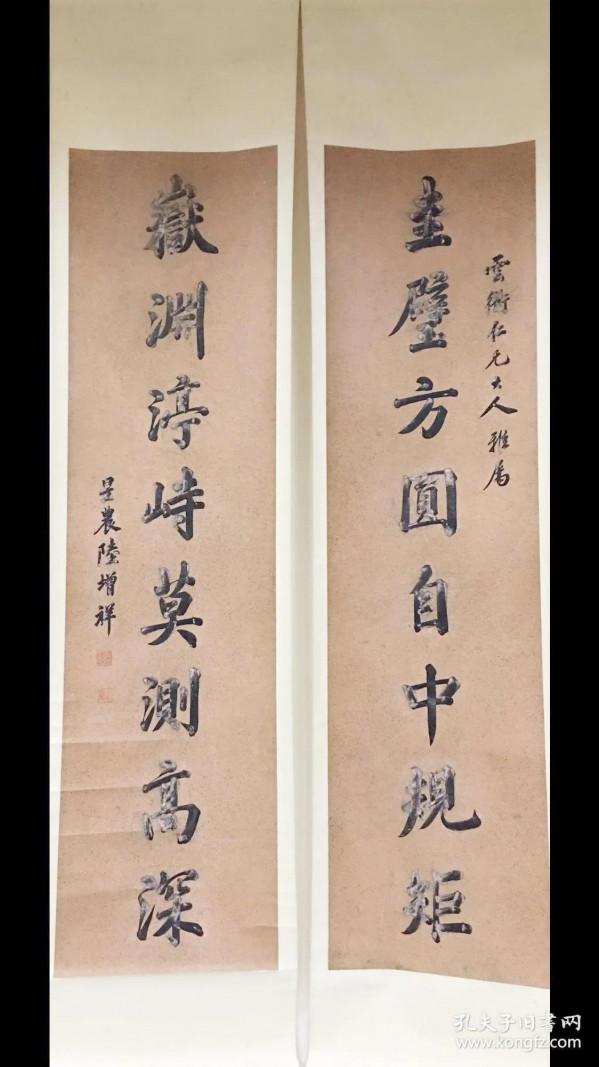 雲衢仁兄大人雅屬
圭璧方圓自中規矩
嶽淵渟峙莫測高深
星農陸增祥
孔夫子旧书网
www.kongfz.com